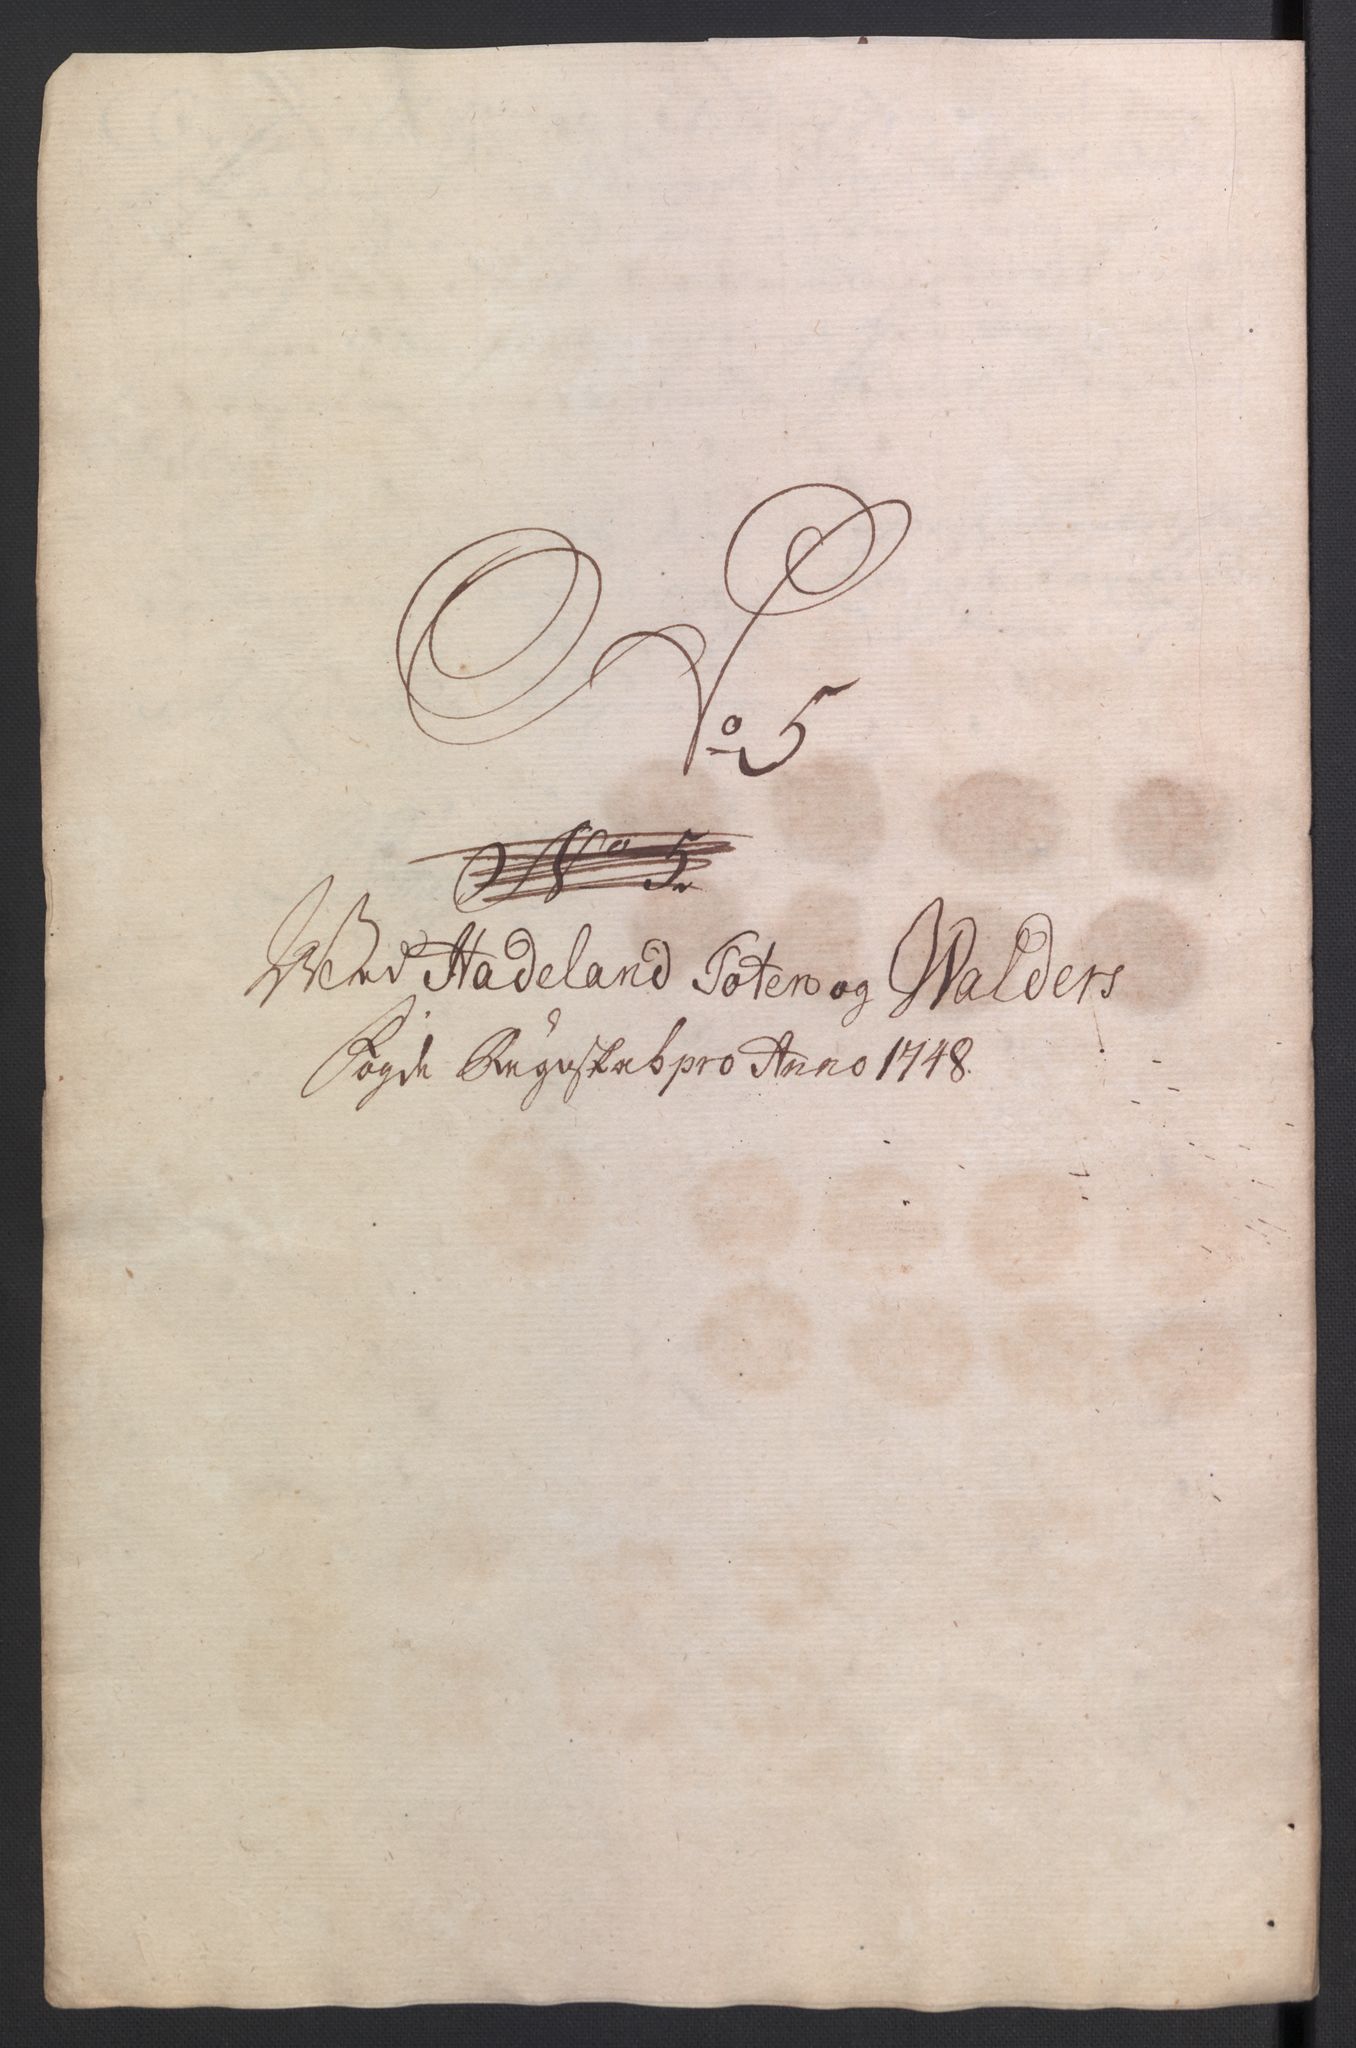 No 5
No 5
Wed Hadeland Toten og Walders
Fogde Regnskab pro Anno 1748.